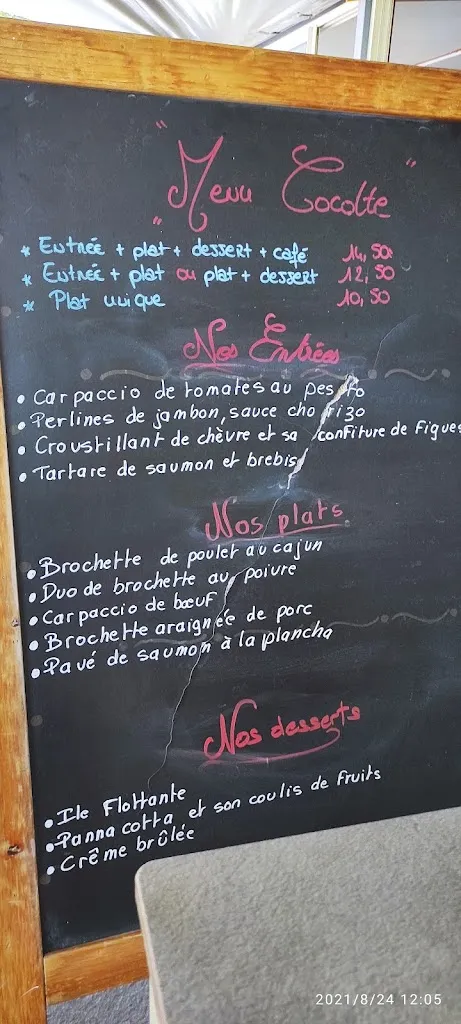 " Menu Cocotte "
* Entrée + plat + dessert + café 14,50
* Entrée + plat ou plat + dessert 12,50
* Plat unique 10,50
Nos Entrées
• Carpaccio de tomates au pesto
• Perlines de jambon, sauce chorizo
• Croustillant de chèvre et sa confiture de Figues
• Tartare de saumon et brebis
Nos plats
• Brochette de poulet au cajun
• Duo de brochette au poivre
• Carpaccio de bœuf
• Brochette araignée de porc
• Pavé de saumon à la plancha
Nos desserts
• Ile Flottante
• Panna cotta et son coulis de fruits
• Crême brûlée
2021/8/24 12:05